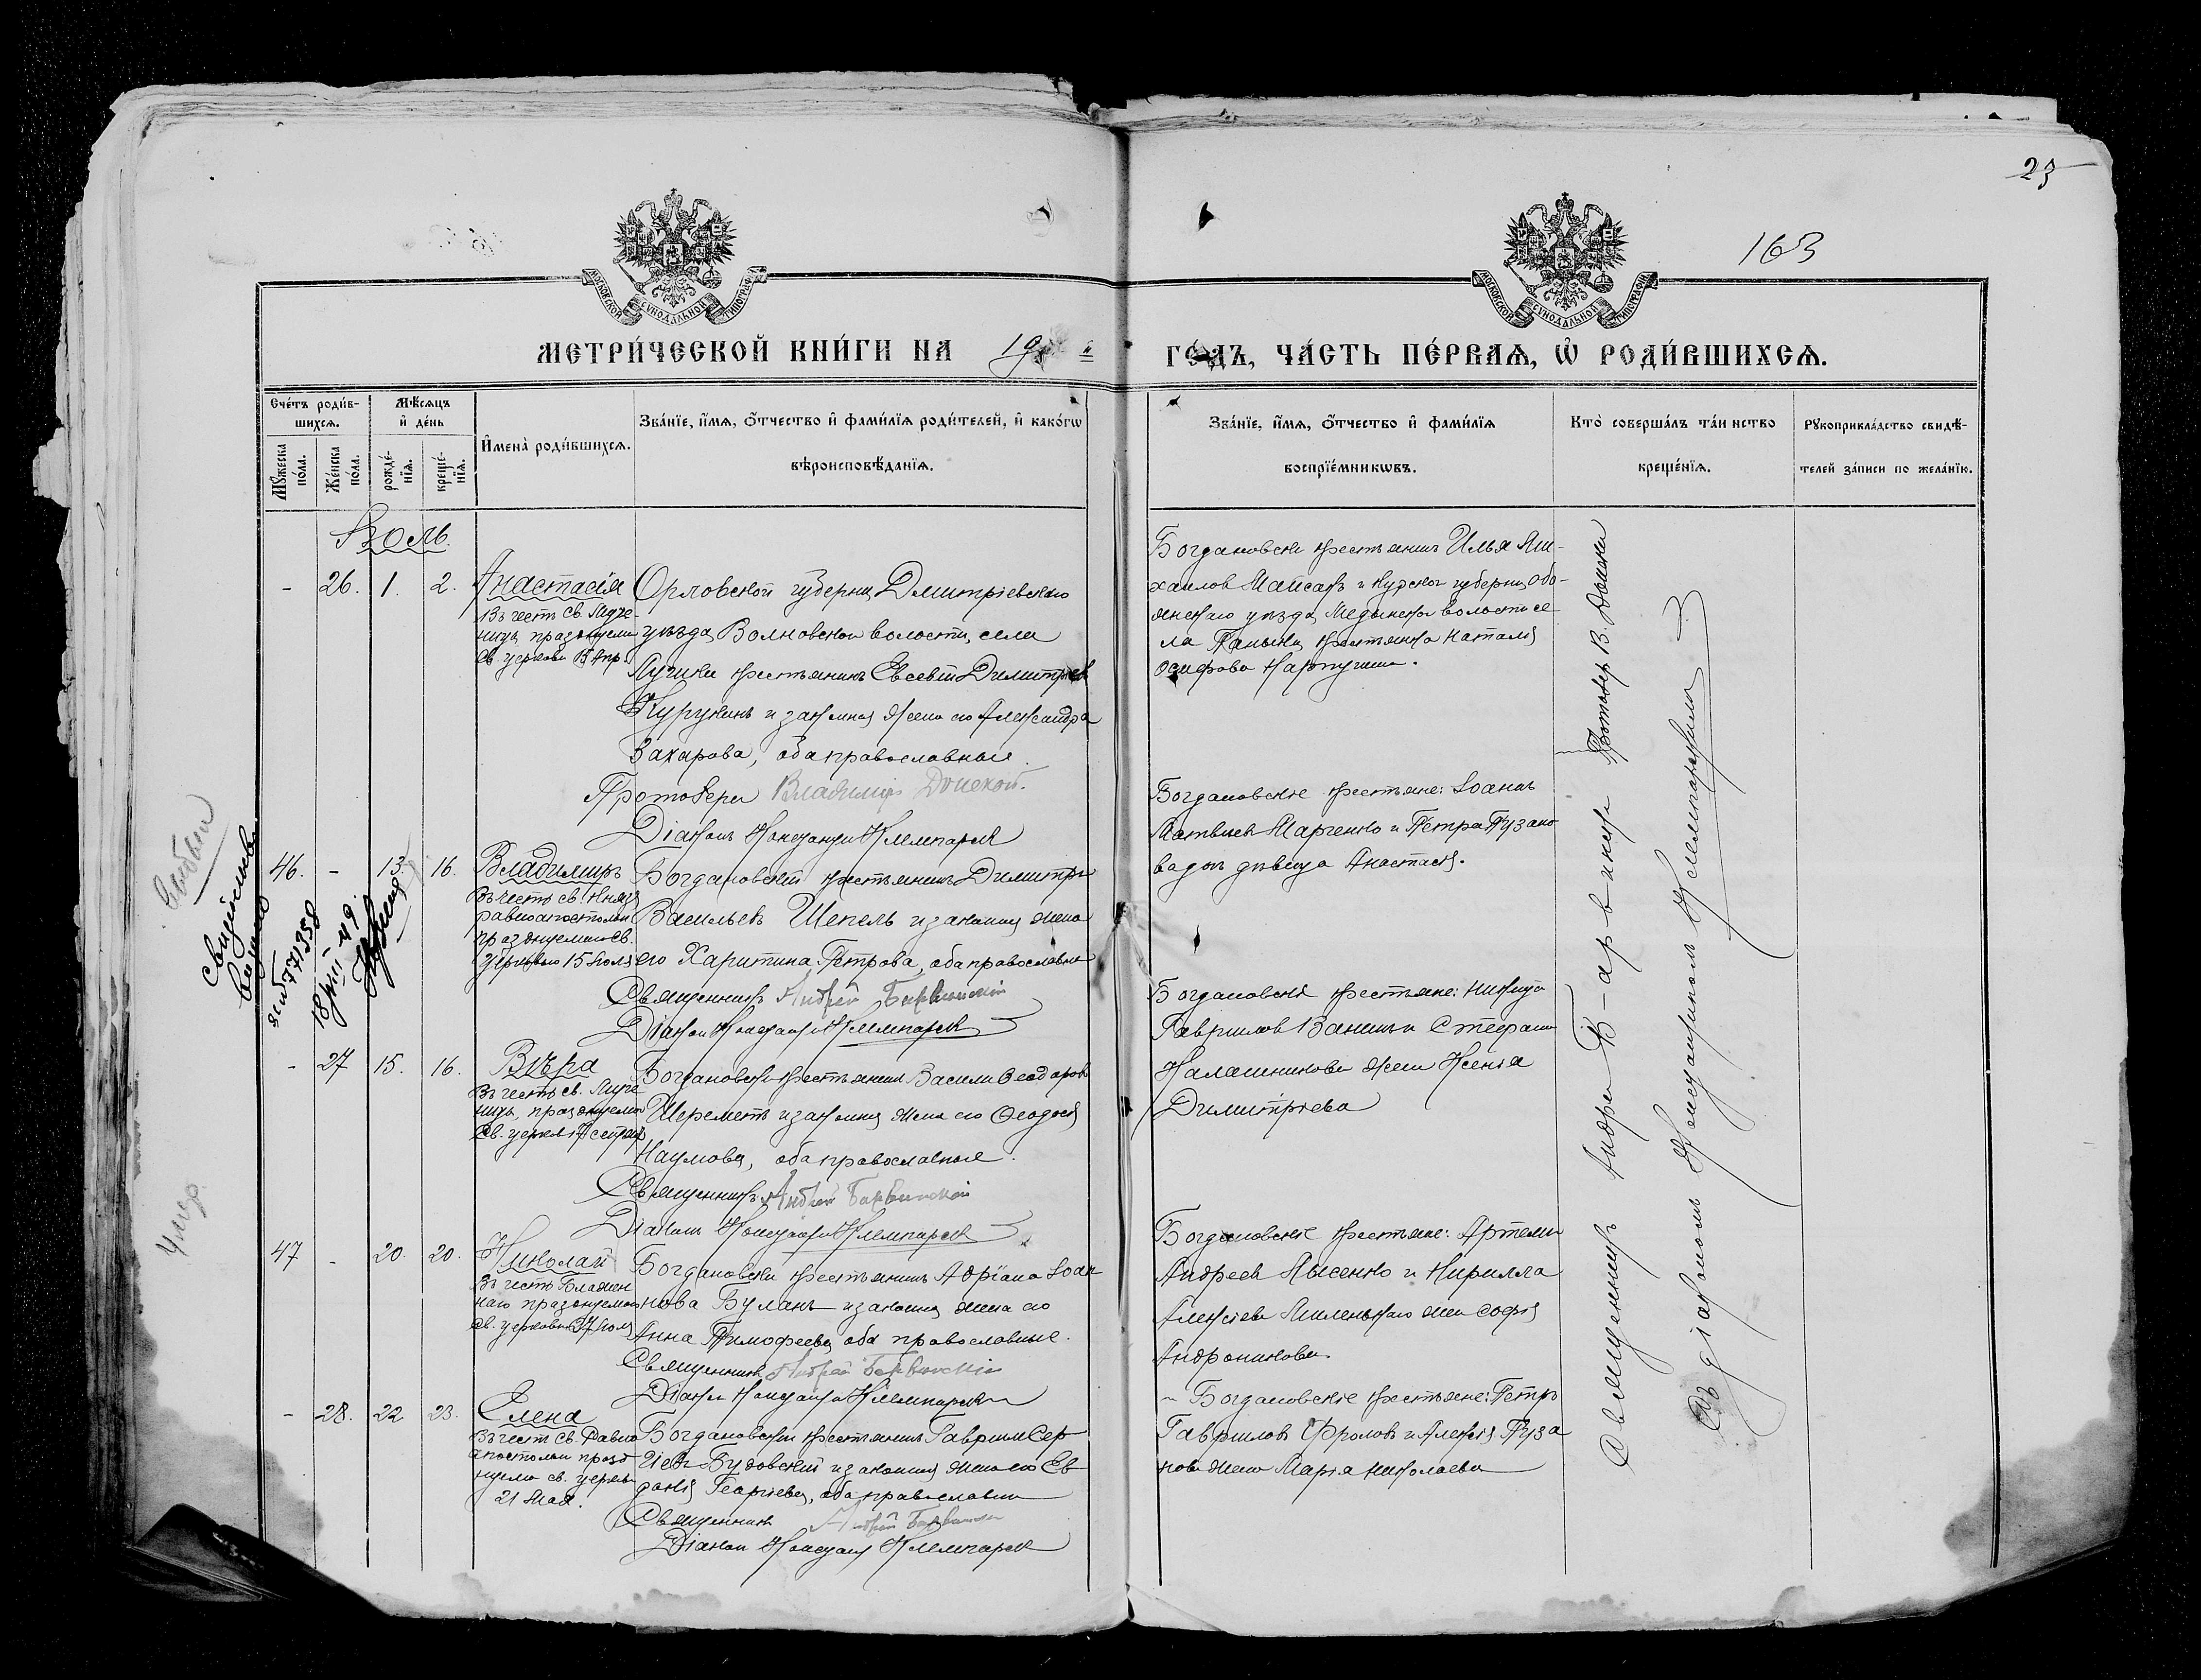 23
163
МОСКОВСКОЙ СУНОДАЛЬНОЙ ТИПОГРАФІИ
МОСКОВСКОЙ СУНОДАЛЬНОЙ ТИПОГРАФІИ
МЕТРИ́ЧЕСКОЙ КНИ́ГИ НА 19
ГО́ДЪ, ЧА́СТЬ ПЕ́РВАѦ, Ѡ҆ РОДИ́ВШИХСѦ.
Сче́тъ роди́в-
шихсѧ.
Мꙋжеска по́ла.
Же́нска по́ла.
Мѣ́сѧцъ
и҆ де́нь
рожде́-
нїѧ.
креще́-
нїѧ.
И҆мена̀ роди́вшихсѧ.
Зва́нїе, и҆́мѧ, ѻ҆́тчество и҆ фами́лїѧ роди́телей, и҆ како́гѡ
вѣроисповѣ́данїѧ.
Зва́нїе, и҆́мѧ, ѻ҆́тчество и҆ фами́лїѧ
воспрїе́мникѡвъ.
Кто̀ соверша́лъ та́инство
креще́нїѧ.
Рꙋкоприкла́дство свидѣ́-
телей за́писи по жела́нїю.
Іюль.
- 26. 1. 2. Анастасія
Въ честь св. Муче-
ницы, празднуемой
св. церковью
Орловской губерніи Дмитріевскаго
уѣзда Волковской волости, села
крестьянинъ Евсевій Димитріевъ
и законная жена его Александра
Захарова, оба православные.
Протоіерей Владиміръ Донской.
Діаконъ
Богдановскій крестьянинъ Илья Ми-
хаиловъ и Курской губерніи, Обо-
янскаго уѣзда, волости се
ла крестьянка Наталія
Осифова
Протоіерей В. Донской
46. - 13. 16. Владимиръ
Въ честь св. Князя
равноапостольн.
празднуемаго св.
церковью 15 Іюля
Богдановскій крестьянинъ Димитрій
Васильевъ Шепель и законная жена
его Харитина Петрова, оба православные
Священникъ Андрей Барвинскій
Діаконъ
Богдановскіе крестьяне: Іоаннъ
Матвѣевъ Марченко и Петра Пузано
ва дочь дѣвица Анастасія.
свидѣтельство
выдано
77358
- 27 15. 16. Вѣра
Въ честь св. Муче
ницы, празднуемой
св. церков. 17 сентября
Богдановскій крестьянинъ Василій Ѳеодоровъ
Шереметъ и законная жена его Ѳеодосія
Наумова, оба православные.
Священникъ Андрей Барвинскій
Діаконъ
Богдановскіе крестьяне: Никита
Гавриловъ Ванинъ и Стефана
Калашникова жена Ксенія
Димитріева
Умер.
47 - 20. 20. Николай
Въ честь Блажен
наго празднуемаго
св. церковью 27 Іюля
Богдановскій крестьянинъ Адріанъ Іоан
новъ Буланъ и законная жена его
Анна Тимофеева, оба православные.
Священникъ Андрей Барвинскій
Діаконъ
Богдановскіе крестьяне: Артемій
Андреевъ Лысенко и Кирилла
Алексіева жена Софія
Андроникова.
- 28. 22 23. Елена
Въ честь св. Равно
апостольн. празд
нуемой св. церков.
21 Мая.
Богдановскій крестьянинъ Гавріилъ Сер
гіевъ Будовскій и законная жена его Ев
докія Георгіева, оба православные
Священникъ Андрей Барвинскій
Діаконъ
Богдановскіе крестьяне: Петръ
Гавриловъ Фроловъ и Алексія Пуза
нова жена Марія Николаева
Священникъ Андрей Барвинскій
Съ діакономъ